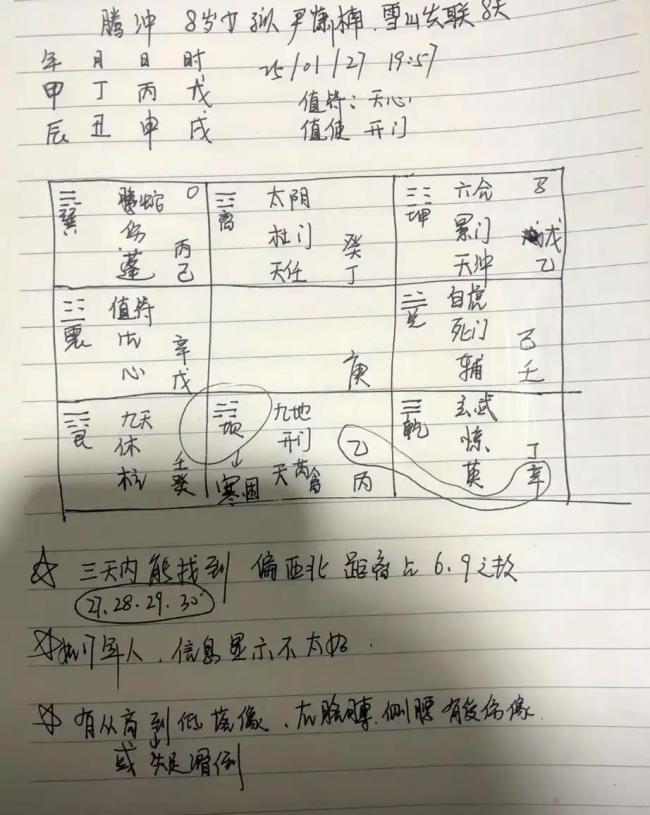 腾冲 8岁女孩尹 楠.雪山失联8天
年 月 日 时 25/01/27 19:57
甲 丁 丙 戊 值符:天心
辰 丑 申 戌 值使 开门
巽 腾蛇 0
伤 丙
蓬 己
离 太阴
杜门 癸
天任 丁
坤 六合 8
景门 戊
天冲 乙
震 值符
心 辛
戊
庚
兑 白虎
死门 己
辅 壬
艮 九天
休 壬
柱 癸
坎 九地
↓ 开门 乙
寒困 天芮禽 丙
乾 玄武
惊 丁
英 辛
☆ 三天内能找到 偏西北 距离占6.9之故
27.28.29.30
☆ 军人,信息显示不太好.
☆ 有从高到低落像、右胳膊.侧腰有受伤像.
或失足滑倒